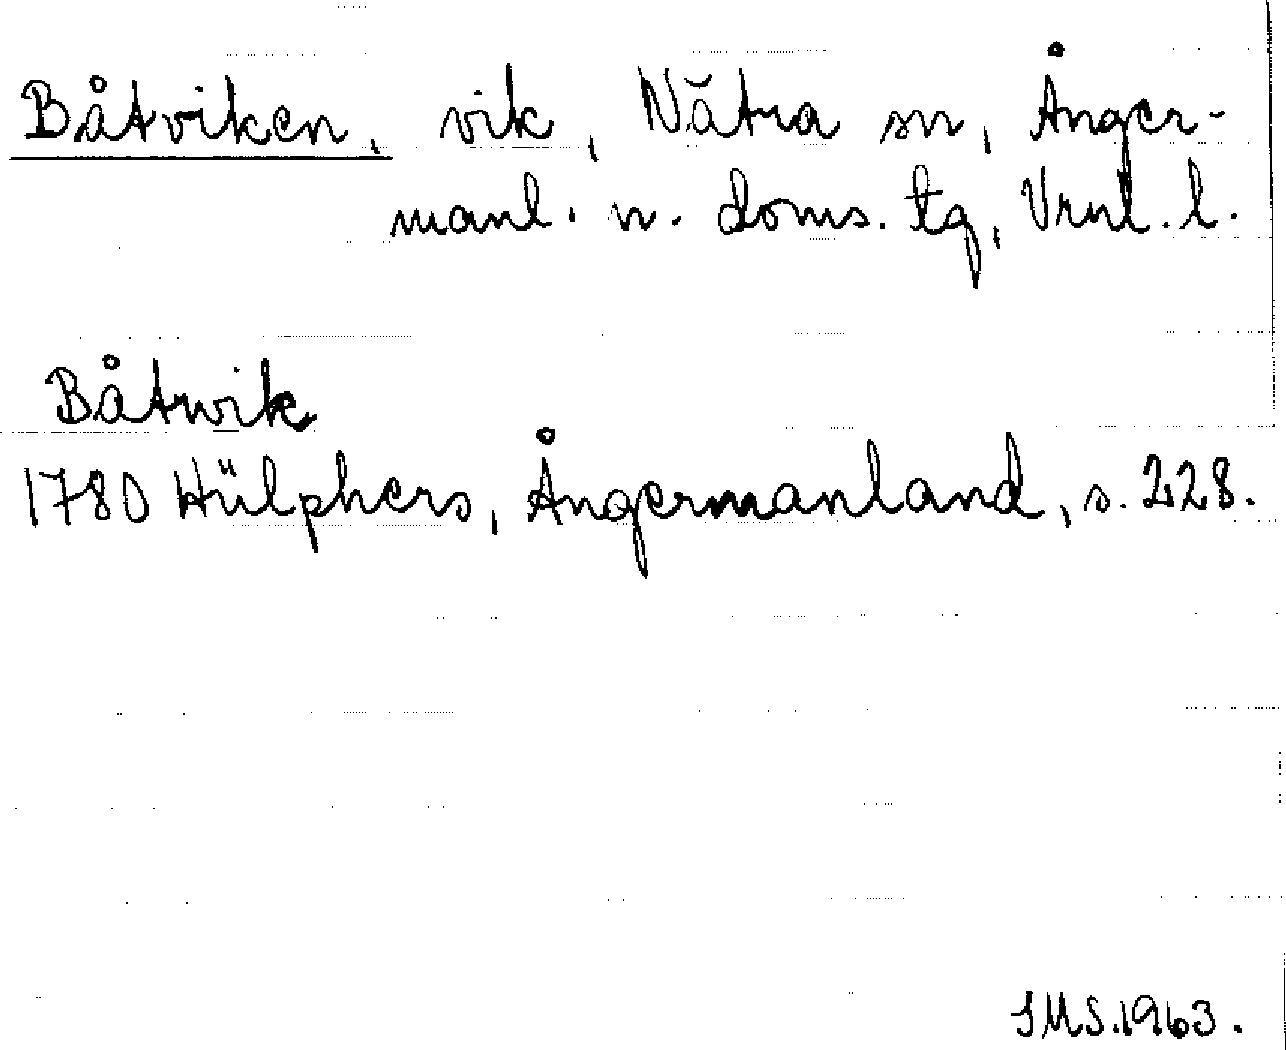 Båtviken, vik, Nätra sn, Ånger-
manl. n. doms. tg, Vrnl. l.
Båtwik
1780 Hülphers, Ångermanland, s. 228.
SMS. 1963.